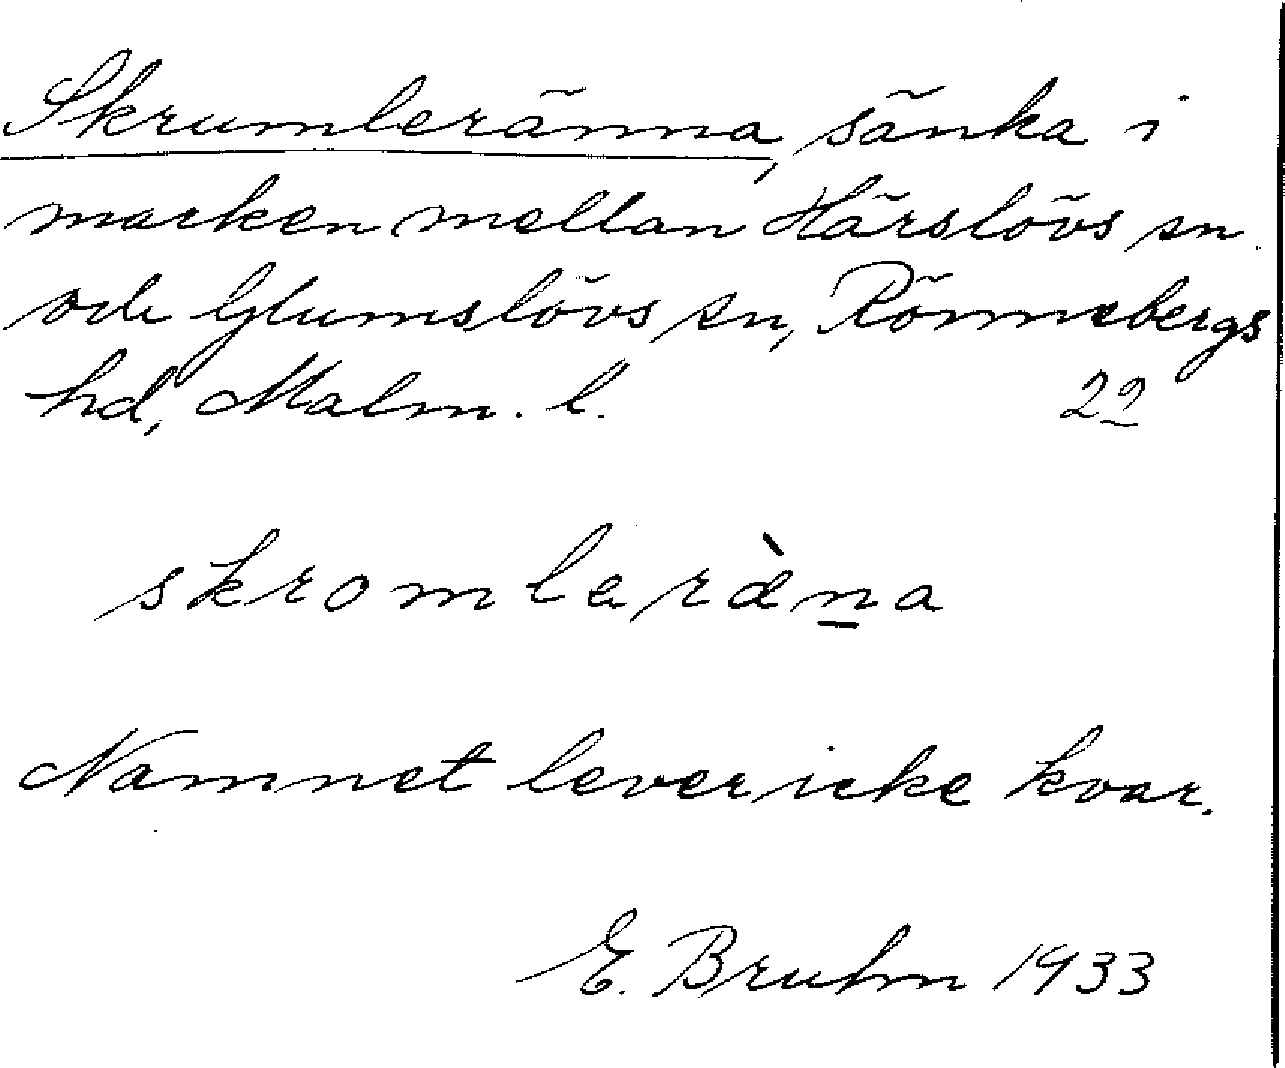 Skrumleränna, sänka i
marken mellan Härslövs sn
och Glumslövs sn, Rönnebergs
hd, Malm. l. 22
skromleræ̀na
Namnet lever icke kvar.
E. Bruhn 1933